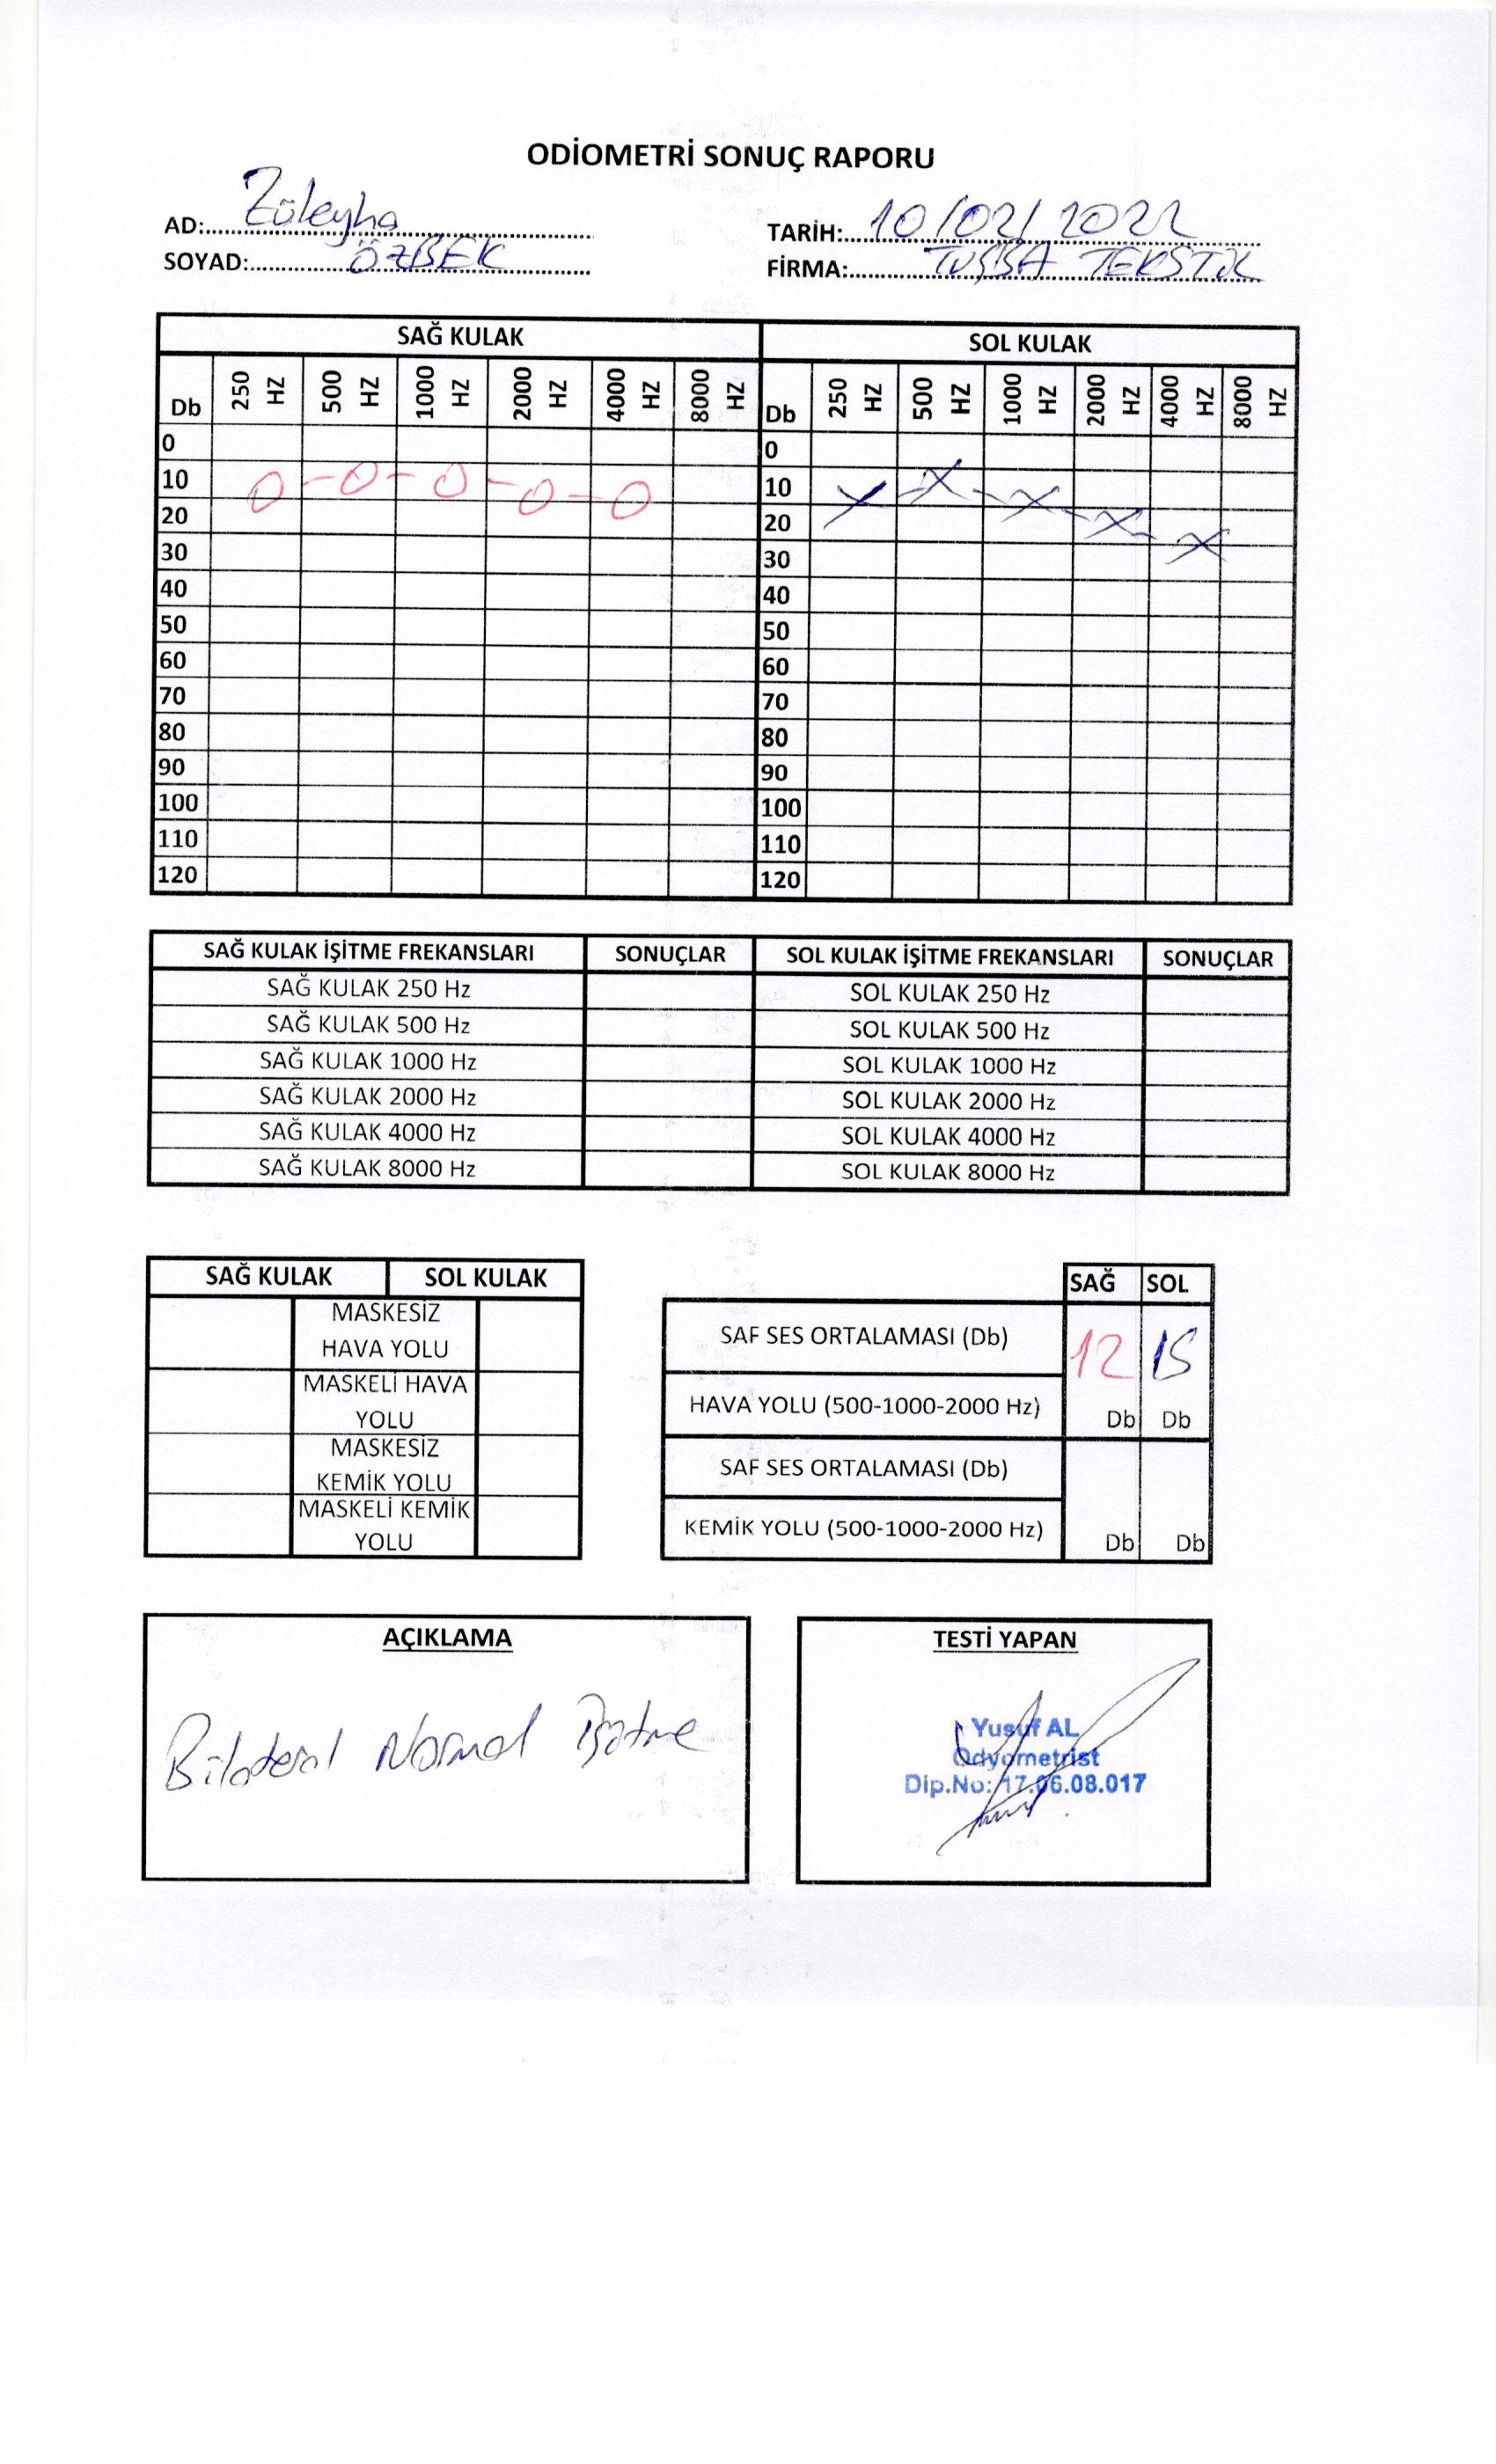 ODİOMETRİ SONUÇ RAPORU
AD: Züleyha
SOYAD: ÖZBEK
TARİH: 10/02/2022
FİRMA: TUŞBA TEKSTİL
SAĞ KULAK SOL KULAK
Db 250 HZ 500 HZ 1000 HZ 2000 HZ 4000 HZ 8000 HZ Db 250 HZ 500 HZ 1000 HZ 2000 HZ 4000 HZ 8000 HZ
0 0
10 10
20 20
30 30
40 40
50 50
60 60
70 70
80 80
90 90
100 100
110 110
120 120
SAĞ KULAK İŞİTME FREKANSLARI SONUÇLAR SOL KULAK İŞİTME FREKANSLARI SONUÇLAR
SAĞ KULAK 250 Hz SOL KULAK 250 Hz
SAĞ KULAK 500 Hz SOL KULAK 500 Hz
SAĞ KULAK 1000 Hz SOL KULAK 1000 Hz
SAĞ KULAK 2000 Hz SOL KULAK 2000 Hz
SAĞ KULAK 4000 Hz SOL KULAK 4000 Hz
SAĞ KULAK 8000 Hz SOL KULAK 8000 Hz
SAĞ KULAK SOL KULAK
MASKESİZ
HAVA YOLU
MASKELİ HAVA
YOLU
MASKESİZ
KEMİK YOLU
MASKELİ KEMİK
YOLU
SAĞ SOL
SAF SES ORTALAMASI (Db) 12 15
HAVA YOLU (500-1000-2000 Hz) Db Db
SAF SES ORTALAMASI (Db)
KEMİK YOLU (500-1000-2000 Hz) Db Db
AÇIKLAMA
Bilateral Normal İşitme
TESTİ YAPAN
Yusuf AL
Odyometrist
Dip.No: 17.06.08.017